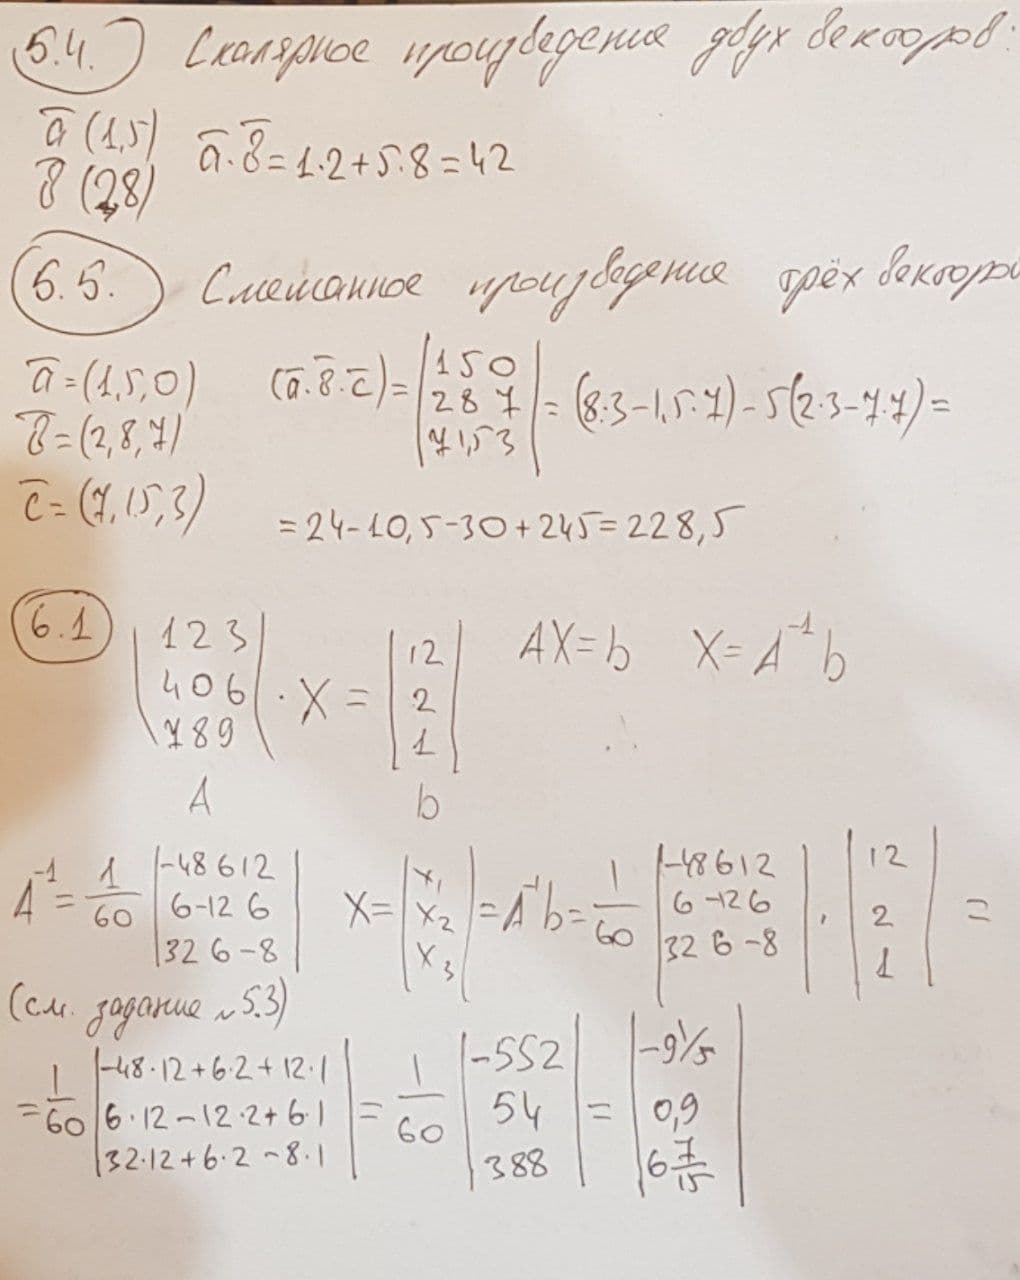 5.4. Скалярное произведение двух векторов:
a̅ (1,5)
b̅ (2,8)
a̅·b̅ = 1·2+5·8=42
5.5. Смешанное произведение трёх векторов
a̅ = (1,5,0)
b̅ = (2,8,7)
c̅ = (7,1.5,3)
(a̅·b̅·c̅) = |1 5 0
2 8 7
7 1,5 3| = (8·3-1,5·7)-5(2·3-7·7)=
=24-10,5-30+245=228,5
6.1
|1 2 3
4 0 6
7 8 9| · X = |12
2
1|
AX=b X=A⁻¹b
A b
A⁻¹ = 1/60 |-48 6 12
6 -12 6
32 6 -8|
X = |x₁
x₂
x₃| = A⁻¹b = 1/60 |-48 6 12
6 -12 6
32 6 -8| · |12
2
1| =
(см. задание ~5.3)
= 1/60 |-48·12+6·2+12·1
6·12-12·2+6·1
32·12+6·2-8·1| = 1/60 |-552
54
388| = |-9 1/5
0,9
6 7/15|